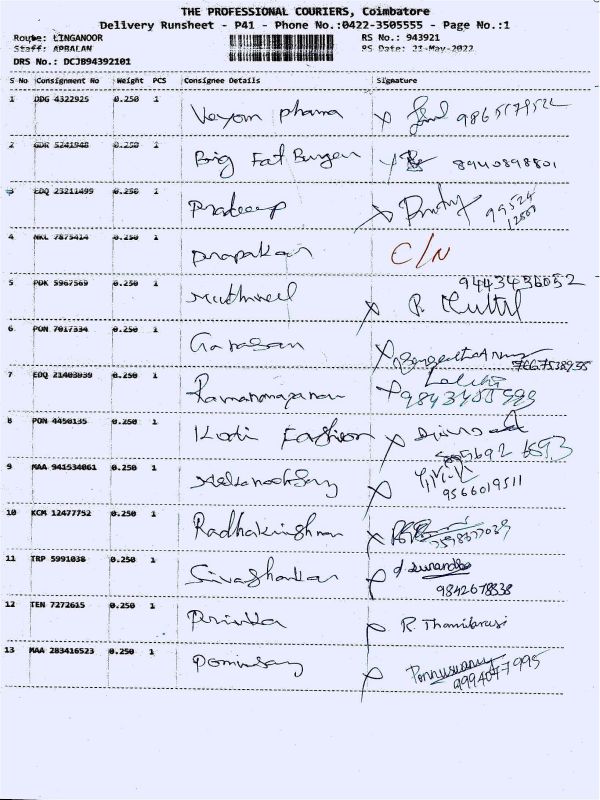 THE PROFESSIONAL COURIERS, Coimbatore
Delivery Runsheet - P41 - Phone No.:0422-3505555 - Page No.:1
Route: LINGANOOR RS No.: 943921
Staff: APBALAN RS Date: 21-May-2022
DRS No.: DCJB94392101
S No Consignment No Weight PCS Consignee Details Signature
1 DDG 4322925 0.250 1 Veyom pharma X
2 GDR 5241948 0.250 1 Big Fat Burger 8940898801
3 EDQ 23211499 0.250 1 Pradeep X 99524
4 NKL 7875414 0.250 1 prapakar C/N
9443436052
5 PDK 5967569 0.250 1 Muthuvel X P. Muthul
6 PON 7017334 0.250 1 X
7667538935
7 EDQ 21403939 0.250 1 X Lalitha
8 PON 4450135 0.250 1 Kodi Fashion X
9 MAA 941534061 0.250 1 X
9566019511
10 KCM 12477752 0.250 1 Radhakrishnan X
11 TRP 5991038 0.250 1 Sivashankar X
9842678838
12 TEN 7272615 0.250 1 X R. Thamilarasi
13 MAA 283416523 0.250 1 X Ponnuswamy
9994047995